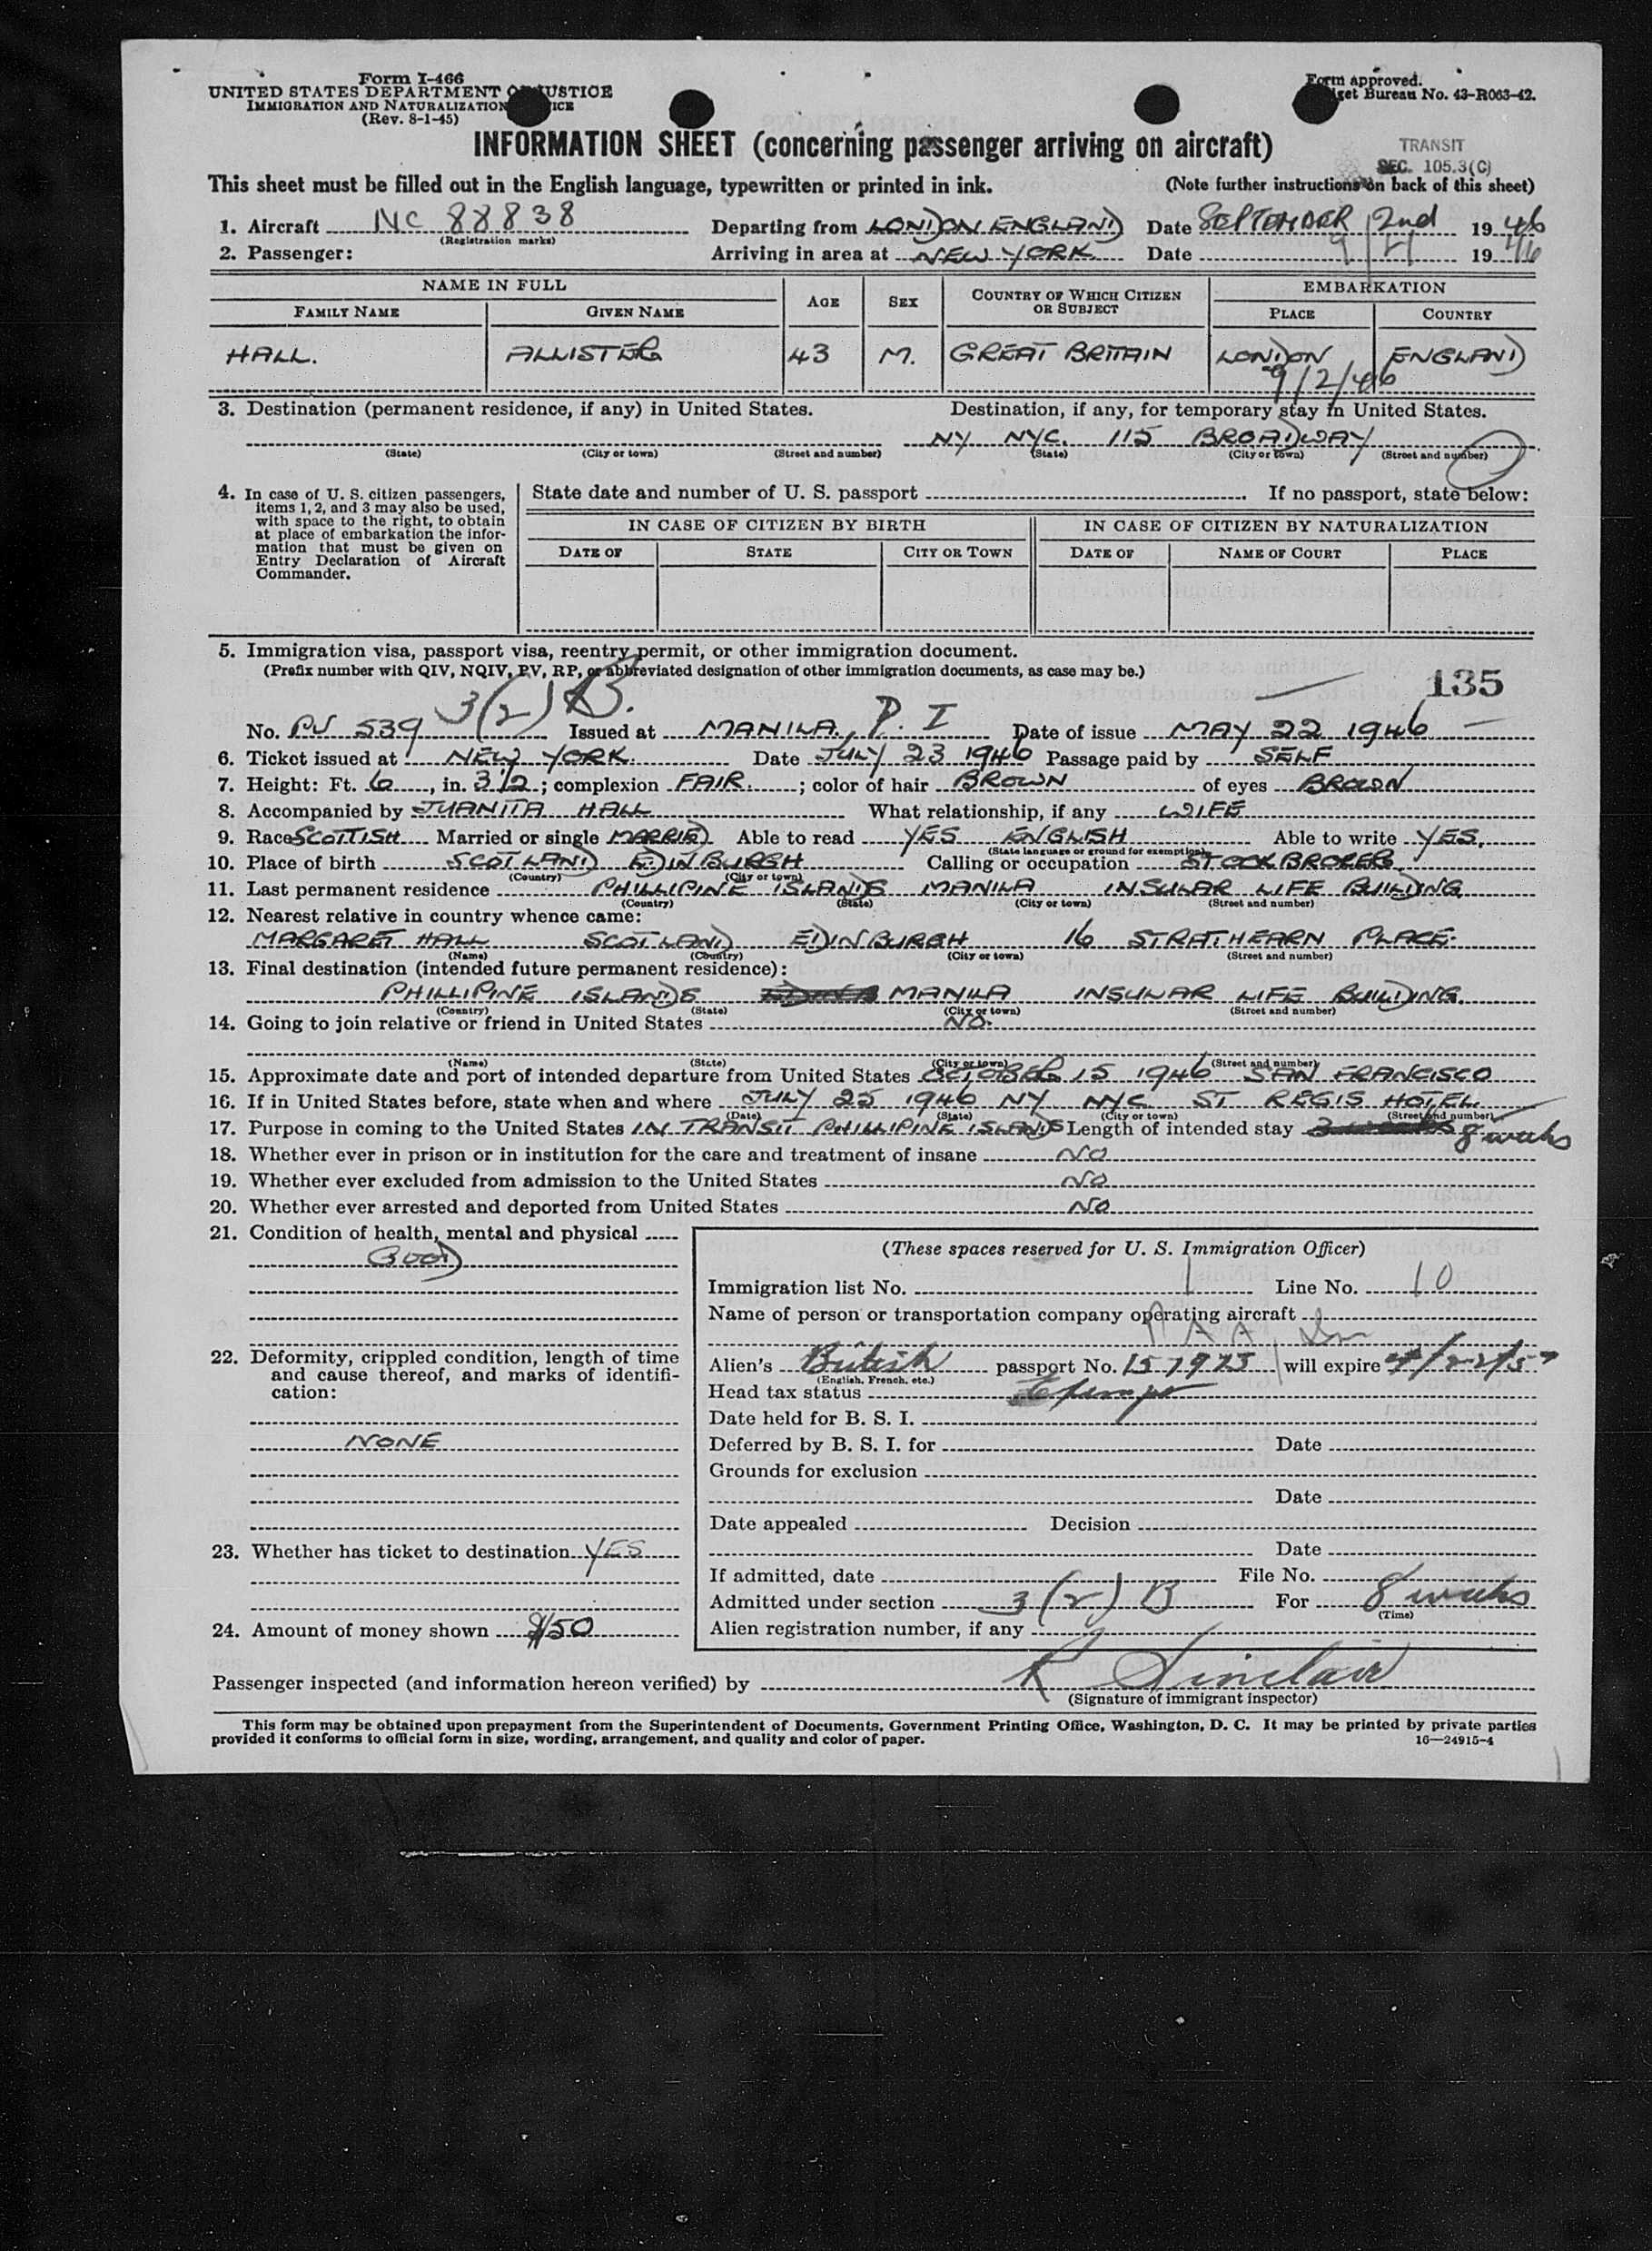 Form I-466
UNITED STATES DEPARTMENT OF JUSTICE
IMMIGRATION AND NATURALIZATION
(Rev. 8-1-45)
Form approved.
Bureau No. 43-R063-42.
INFORMATION SHEET (concerning passenger arriving on aircraft)
TRANSIT
SEC. 105.3(C)
This sheet must be filled out in the English language, typewritten or printed in ink. (Note further instructions on back of this sheet)
1. Aircraft NC 88838 Departing from LONDON ENGLAND Date SEPTEMBER 2nd 1946
(Registration marks)
2. Passenger: Arriving in area at NEW YORK Date 1946
NAME IN FULL AGE SEX COUNTRY OF WHICH CITIZEN OR SUBJECT EMBARKATION
FAMILY NAME GIVEN NAME PLACE COUNTRY
HALL. ALLISTER 43 M. GREAT BRITAIN LONDON ENGLAND
9/2/46
3. Destination (permanent residence, if any) in United States. Destination, if any, for temporary stay in United States.
NY NYC. 115 BROADWAY
(State) (City or town) (Street and number) (State) (City or town) (Street and number)
4. In case of U. S. citizen passengers, items 1, 2, and 3 may also be used, with space to the right, to obtain at place of embarkation the information that must be given on Entry Declaration of Aircraft Commander.
State date and number of U. S. passport If no passport, state below:
IN CASE OF CITIZEN BY BIRTH IN CASE OF CITIZEN BY NATURALIZATION
DATE OF STATE CITY OR TOWN DATE OF NAME OF COURT PLACE
5. Immigration visa, passport visa, reentry permit, or other immigration document.
(Prefix number with QIV, NQIV, PV, RP, or abbreviated designation of other immigration documents, as case may be.)
135
3(2) B.
No. PV 539 Issued at MANILA, P. I Date of issue MAY 22 1946
6. Ticket issued at NEW YORK. Date JULY 23 1946 Passage paid by SELF
7. Height: Ft. 6, in. 3 1/2; complexion FAIR.; color of hair BROWN of eyes BROWN
8. Accompanied by JUANITA HALL What relationship, if any WIFE
9. Race SCOTTISH Married or single MARRIED Able to read YES ENGLISH Able to write YES.
(State language or ground for exemption)
10. Place of birth SCOTLAND EDINBURGH Calling or occupation STOCKBROKER
(Country) (City or town)
11. Last permanent residence PHILLIPINE ISLANDS MANILA INSULAR LIFE BUILDING
(Country) (State) (City or town) (Street and number)
12. Nearest relative in country whence came:
MARGARET HALL SCOTLAND EDINBURGH 16 STRATHEARN PLACE.
(Name) (Country) (City or town) (Street and number)
13. Final destination (intended future permanent residence):
PHILLIPINE ISLANDS MANILA INSULAR LIFE BUILDING.
(Country) (State) (City or town) (Street and number)
14. Going to join relative or friend in United States NO.
(Name) (State) (City or town) (Street and number)
15. Approximate date and port of intended departure from United States OCTOBER 15 1946 SAN FRANCISCO
16. If in United States before, state when and where JULY 25 1946 NY NYC ST REGIS HOTEL.
(Date) (State) (City or town) (Street and number)
17. Purpose in coming to the United States IN TRANSIT PHILLIPINE ISLANDS Length of intended stay 8 weeks
18. Whether ever in prison or in institution for the care and treatment of insane NO
19. Whether ever excluded from admission to the United States NO
20. Whether ever arrested and deported from United States NO
21. Condition of health, mental and physical
GOOD
22. Deformity, crippled condition, length of time and cause thereof, and marks of identification:
NONE
23. Whether has ticket to destination YES
24. Amount of money shown $150
(These spaces reserved for U. S. Immigration Officer)
Immigration list No. 1 Line No. 10
Name of person or transportation company operating aircraft
P A A
Alien's British passport No. 157975 will expire
(English, French, etc.)
Head tax status Exempt
Date held for B. S. I.
Deferred by B. S. I. for Date
Grounds for exclusion
Date
Date appealed Decision
Date
If admitted, date File No.
Admitted under section 3(2) B For 8 weeks
(Time)
Alien registration number, if any
Passenger inspected (and information hereon verified) by R Sinclair
(Signature of immigrant inspector)
This form may be obtained upon prepayment from the Superintendent of Documents, Government Printing Office, Washington, D. C. It may be printed by private parties
provided it conforms to official form in size, wording, arrangement, and quality and color of paper. 16—24915-4